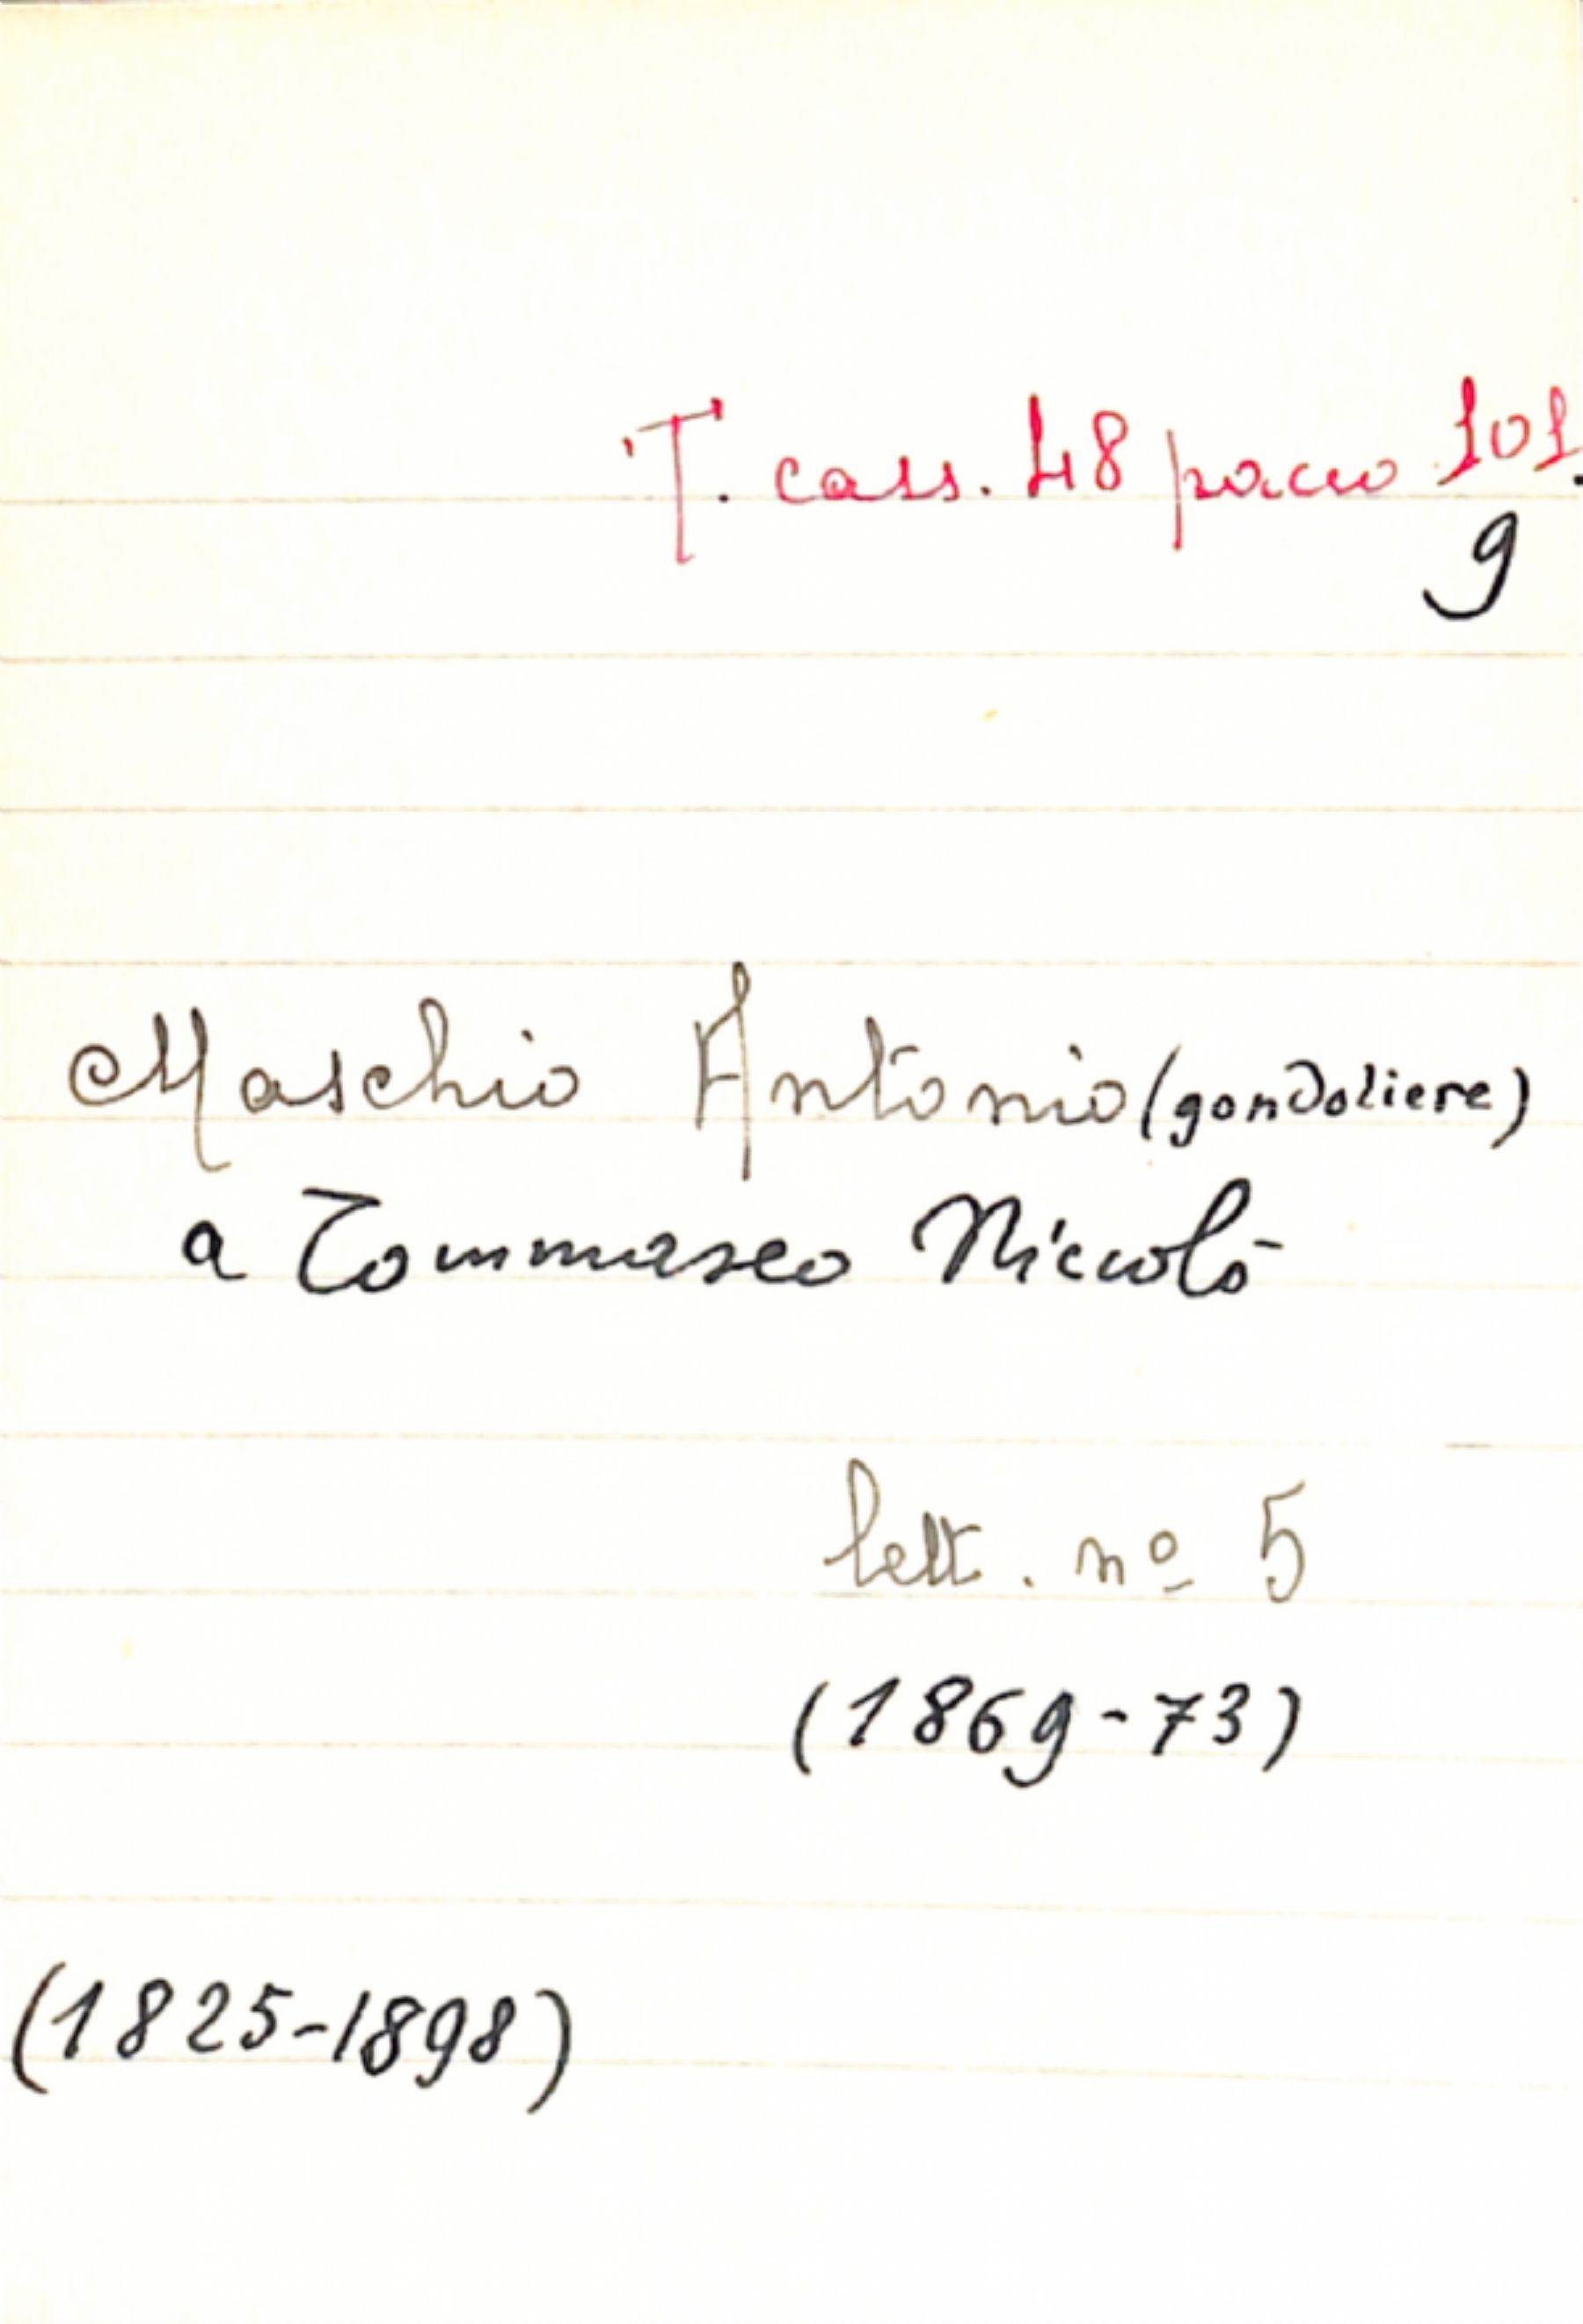 T. cass. 48 pacco 101.
9
Maschio Antonio (gondoliere)
a Tommaseo Niccolò
lett. nº 5
(1869-73)
(1825-1898)